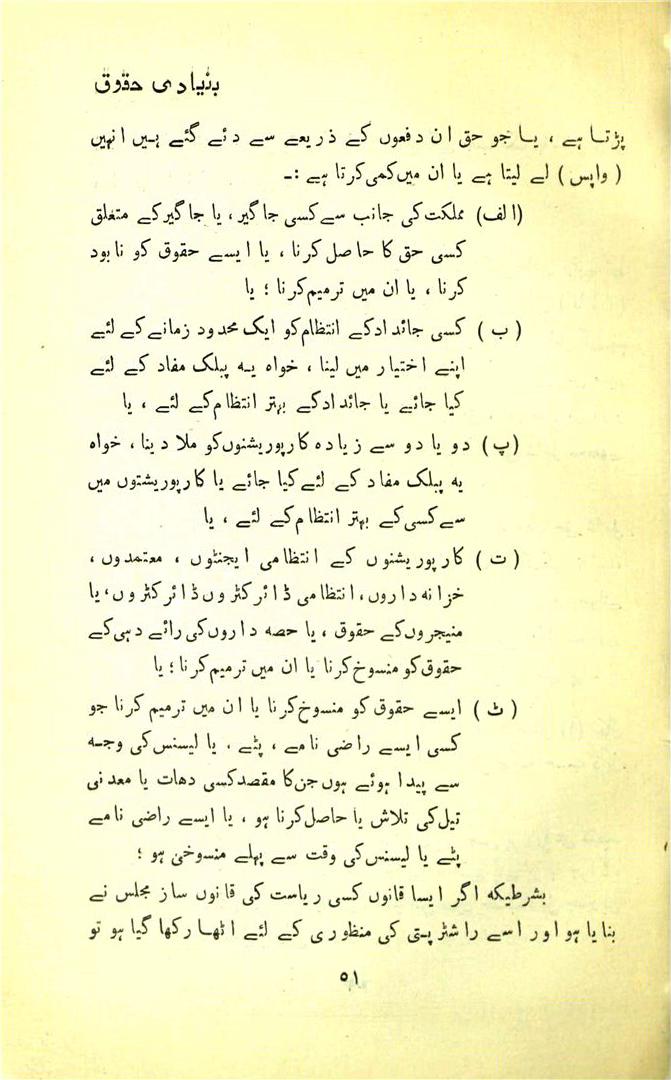 بنیادی حقوق
پڑتا ہے ، یا جو حق ان دفعوں کے ذریعے سے دئے گئے ہیں انہیں
( واپس ) لے لیتا ہے یا ان میں کمی کرتا ہے :-
(الف) مملکت کی جانب سے کسی جاگیر، یا جاگیر کے متعلق
کسی حق کا حاصل کرنا ، یا ایسے حقوق کو نابود
کرنا ، یا ان میں ترمیم کرنا ؛ یا
( ب ) کسی جائداد کے انتظام کو ایک محدود زمانے کے لئے
اپنے اختیار میں لینا ، خواہ یہ پبلک مفاد کے لئے
کیا جائے یا جائداد کے بہتر انتظام کے لئے ، یا
(پ) دو یا دو سے زیادہ کارپوریشنوں کو ملا دینا ، خواہ
یہ پبلک مفاد کے لئے کیا جائے یا کارپوریشتوں میں
سے کسی کے بہتر انتظام کے لئے ، یا
( ت ) کارپوریشنوں کے انتظامی ایجنٹوں ، معتمدوں ،
خزانہ داروں، انتظامی ڈائرکٹروں ڈائرکٹروں، یا
منیجروں کے حقوق ، یا حصہ داروں کی رائے دہی کے
حقوق کو منسوخ کرنا یا ان میں ترمیم کرنا ؛ یا
( ٹ ) ایسے حقوق کو منسوخ کرنا یا ان میں ترمیم کرنا جو
کسی ایسے راضی نامے ، پٹے ، یا لیسنس کی وجہ
سے پیدا ہوئے ہوں جن کا مقصد کسی دھات یا معدنی
تیل کی تلاش یا حاصل کرنا ہو ، یا ایسے راضی نامے
پٹے یا لیسنس کی وقت سے پہلے منسوخی ہو ؛
بشرطیکہ اگر ایسا قانوں کسی ریاست کی قانوں ساز مجلس نے
بنایا ہو اور اسے راشٹرپتی کی منظوری کے لئے اٹھا رکھا گیا ہو تو
۵۱